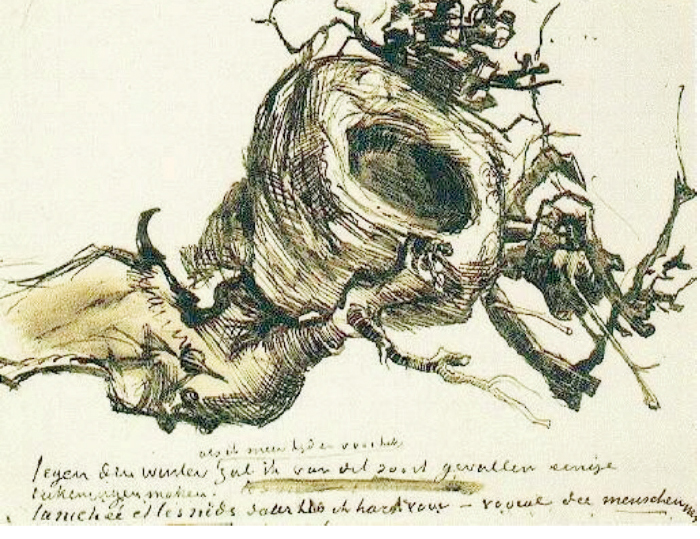 als ik meer tijd er voor heb
tegen den winter zal ik van dit soort gevallen eenige
teekeningen maken.
La nichée et les nids daar heb ik hart voor – vooral die menschennes